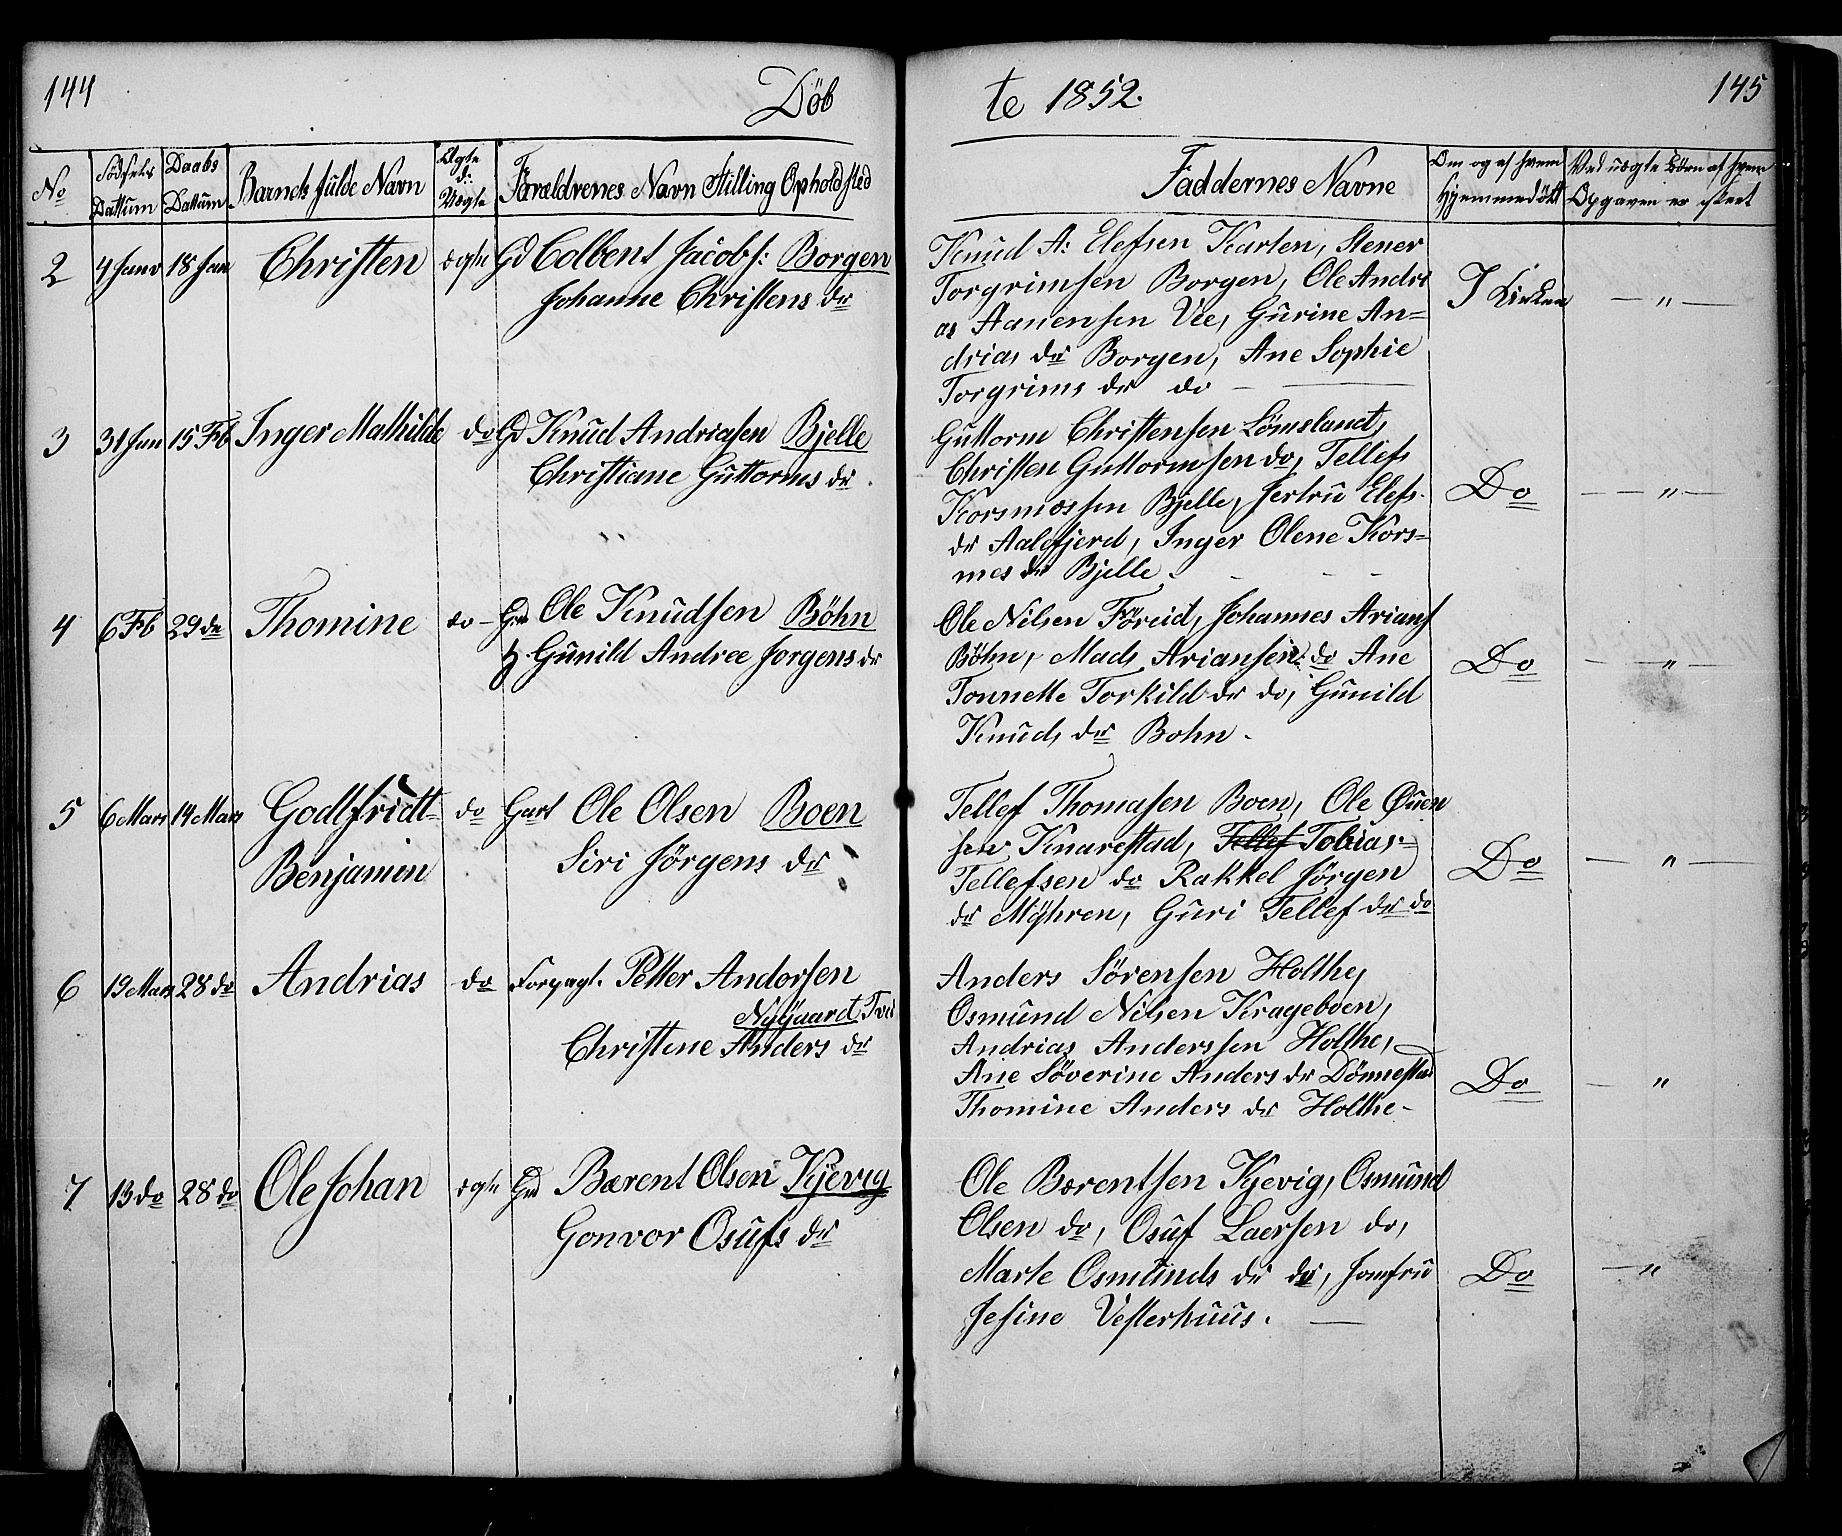 144
Döb
No
Födsels Dattum
Daabs Dattum
Barnets fulde Navn
Ægte d: Uægte
Foræeldrenes Navn Stilling Opholdsted
2 4 Janv 18 Jan Christen ægte Gd Colbent Jacobs: Borgen
Johanne Christens dr
3 31 Jan 15 Fb Inger Mathilde do Gd Knud Andriasen Bjelle
Christiane Guttorms dr.
4 6 Fb 29 do Thomine do - Grd Ole Knudsen Böhn
Gunild Andree Jorgens dr
5 6 Mars 14 Mars Godtfridt- do Gart Ole Olsen Boen
Benjamin Siri Jörgens dr
6 19 Mars 28 do Andrias do Forpagt. Petter Andorsen
Nygaard Tved
Christine Anders dr
7 13 do 28 do Ole Johan ægte Grd Bærent Olsen Kjevig
Gonvor Osufs dr
te 1852.
145
Faddernes Navne
Om og af hvem Hjemmedöbt
Ved uægte Börn af hvem Opgaven er skeet
Knud A: Elefsen Karten, Stener
Torgrimsen Borgen, Ole Andri
as Aanensen Vee, Gurine An=
drias dr Borgen, Ane Sophie
Torgrims dr do -
I Kirken — " —
Guttorm Christensen Lömsland,
Christen Guttormsen do, Tellef
Korsmæssen Bjelle, Jertru Elefs.
dr Aalefjerd, Inger Olene Kors=
mes dr Bjelle.
Do — " —
Ole Nilsen Föreid, Johannes Arians
Böhn, Mads Ariansen do Ane
Tonnette Torkild dr do, Gunild
Knuds dr Bohn.
Do — " —
Tellef Thomasen Boen, Ole Ouen
sen Knarestad, Tellef Tobias=
Tellefsen do Rakkel Jörgen
dr Myhren, Guri Tellef dr do
Do — " —
Anders Sörensen Holthe,
Osmund Nilsen Krageboen,
Andrias Anderssen Holthe,
Ane Söverine Anders dr Dönnestad
Thomine Anders dr Holthe-
Do — "
Ole Bærentsen Kjevig, Osmund
Olsen do, Osuf Laersen do,
Marte Osmunds dr do, Jomfru
Jesine Vesterhuus. —
Do — "